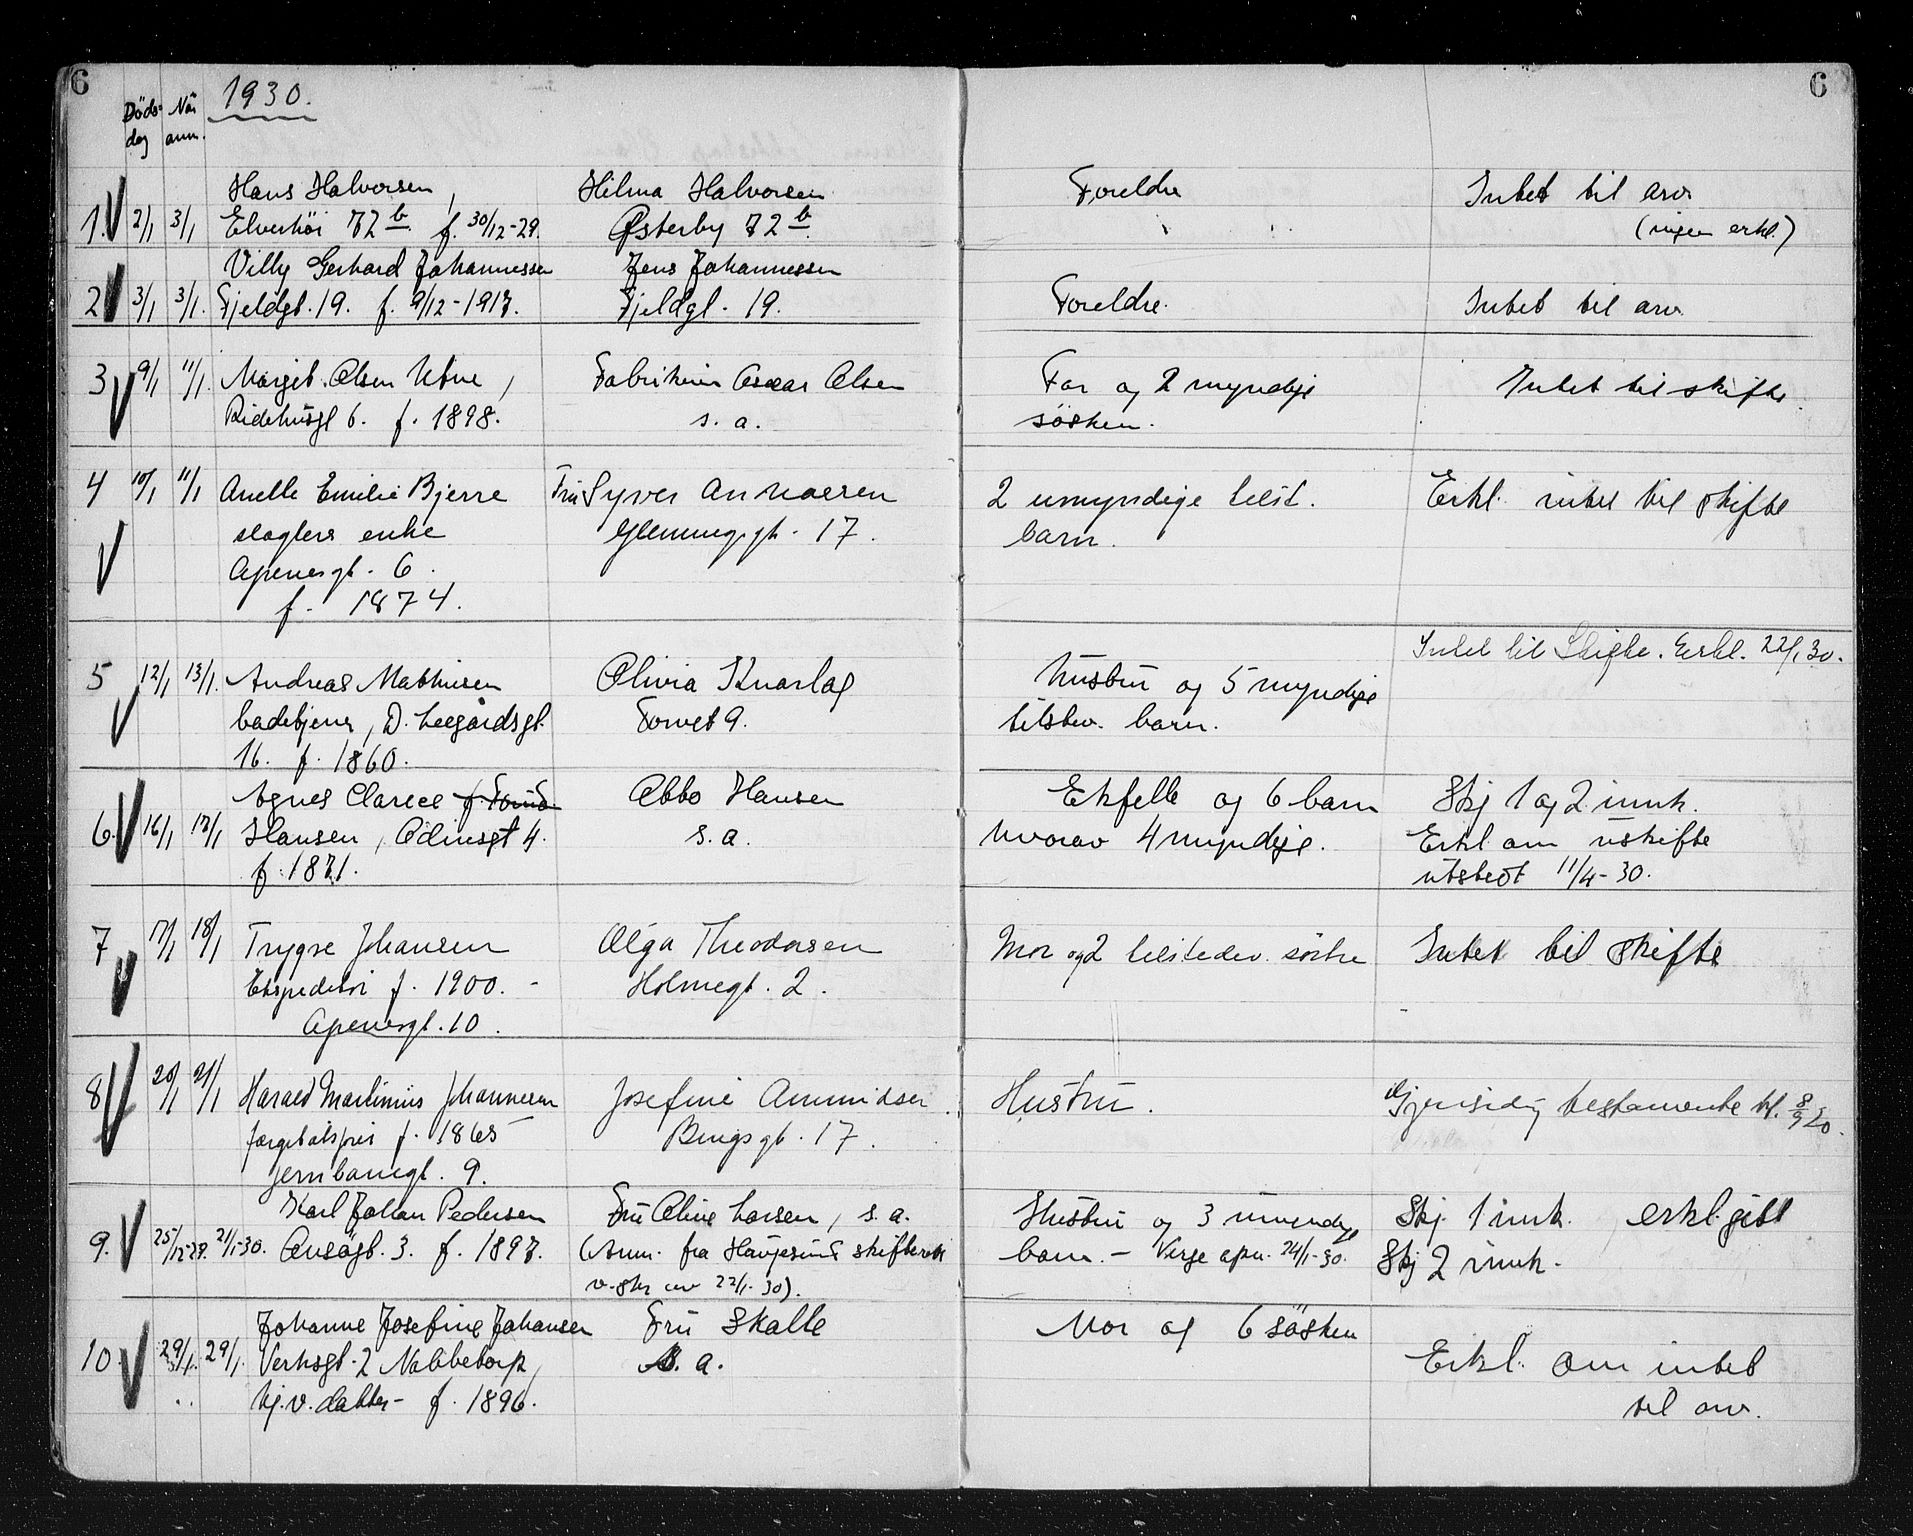 6
6
1930.
Døds- Når
dag anm.
Hans Halvorsen, Hilma Halvorsen Foreldre Intet til arv
1. 2/1 3/1 Elverhöi 72 b. f. 30/12-29. Østerby 72 b. (ingen erkl.)
Villy Gerhard Johannessen Jens Johannessen
2 3/1 3/1. Fjeldgt. 19. f. 9/12-1917. Fjeldgt. 19. Foreldre. Intet til arv
3 9/1 11/1. Margit Olsen Utne, Fabrikeier Oscar Olsen Far og 2 myndige Intet til skifte.
Ridehusgt 6. f. 1898. s. a. søsken.
4 10/1 11/1 Anelle Emilie Bjerre Fru Syver Andersen 2 umyndige tilst. Erkl. intet til skifte
slagters enke Glemmengt. 17. barn.
Apenesgt. 6.
f. 1874.
Intet til Skifte. Erkl. 22/1 30.
5 12/1 13/1. Andreas Mathisen Olivia Knarlag hustru og 5 myndige
badetjener, D. Leegårdsgt. Torvet 9. tilstev. barn.
16. f. 1860.
Agnes Clarece Abbo Hansen Ekfelle og 6 barn Skj 1 og 2 innk.
6. 16/1 17/1 Hansen, Odinsgt 4. s. a. hvorav 4 myndige. Erkl om uskifte
f. 1871. utstedt 11/4-30.
7 17/1 18/1 Trygve Johansen Olga Theodorsen Mor og 2 tilstedev. søstre Intet til skifte
Ekspeditør f. 1900. - Holmegt. 2.
Apenesgt. 10.
8 20/1 21/1 Harald Martinius Johannesen Josefine Amundsen Hustru. Gjensidig testamente av 8/9 20.
f. 1865 Bingsgt. 17.
Jernbanegt. 9.
Karl Johan Pedersen Fru Oline Larsen, s. a. Hustru og 3 umyndige Skj. 1 innk. erkl. gitt
9. 25/12-29. 21/1-30. Ansøgt. 3. f. 1897. (Anm. fra Haugesund skifterett barn - Verge opn. 24/1-30. Skj 2 innk.
v. skr av 22/1-30).
Johanne Josefine Johansen Fru Skalle Mor og 6 søsken
10. 29/1. 29/1. Verksgt. 2 Nabbetorp, s. a. Erkl. om intet
hj. v. datter - f. 1896. til arv.